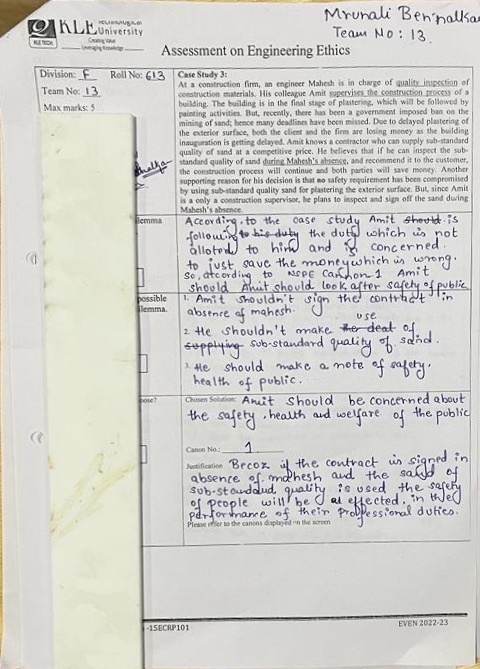 Mrunali Bennalkar
Team No : 13.
KLE Technological University
Creating Value
Leveraging Knowledge
KLE TECH
Assessment on Engineering Ethics
Division: F Roll No: 613
Team No: 13
Max marks: 5
Case Study 3:
At a construction firm, an engineer Mahesh is in charge of quality inspection of
construction materials. His colleague Amit supervises the construction process of a
building. The building is in the final stage of plastering, which will be followed by
painting activities. But, recently, there has been a government imposed ban on the
mining of sand; hence many deadlines have been missed. Due to delayed plastering of
the exterior surface, both the client and the firm are losing money as the building
inauguration is getting delayed. Amit knows a contractor who can supply sub-standard
quality of sand at a competitive price. He believes that if he can inspect the sub-
standard quality of sand during Mahesh's absence, and recommend it to the customer,
the construction process will continue and both parties will save money. Another
supporting reason for his decision is that no safety requirement has been compromised
by using sub-standard quality sand for plastering the exterior surface. But, since Amit
is only a construction supervisor, he plans to inspect and sign off the sand during
Mahesh's absence.
lemma
According, to the case study Amit should is
following to his duty the duty which is not
alloted to him and is concerned.
to just save the money which is wrong.
So, atcording to NSPE Cannon 1 Amit
should Amit should look after safety of public
possible
lemma.
1. Amit shouldn't sign the contract in
absence of mahesh.
2. He shouldn't make the deal use of
supplying sub-standard quality of sand.
3. He should make a note of safety,
health of public.
ose?
Chosen Solution: Amit should be concerned about
the safety, health and welfare of the public
Canon No.: 1
Justification Becoz if the contract is signed in
absence of mahesh and the sand of
sub-standard quality is used the safety
of people will be effected, in the
performance of their professional duties.
Please refer to the canons displayed on the screen
-15ECRP101
EVEN 2022-23